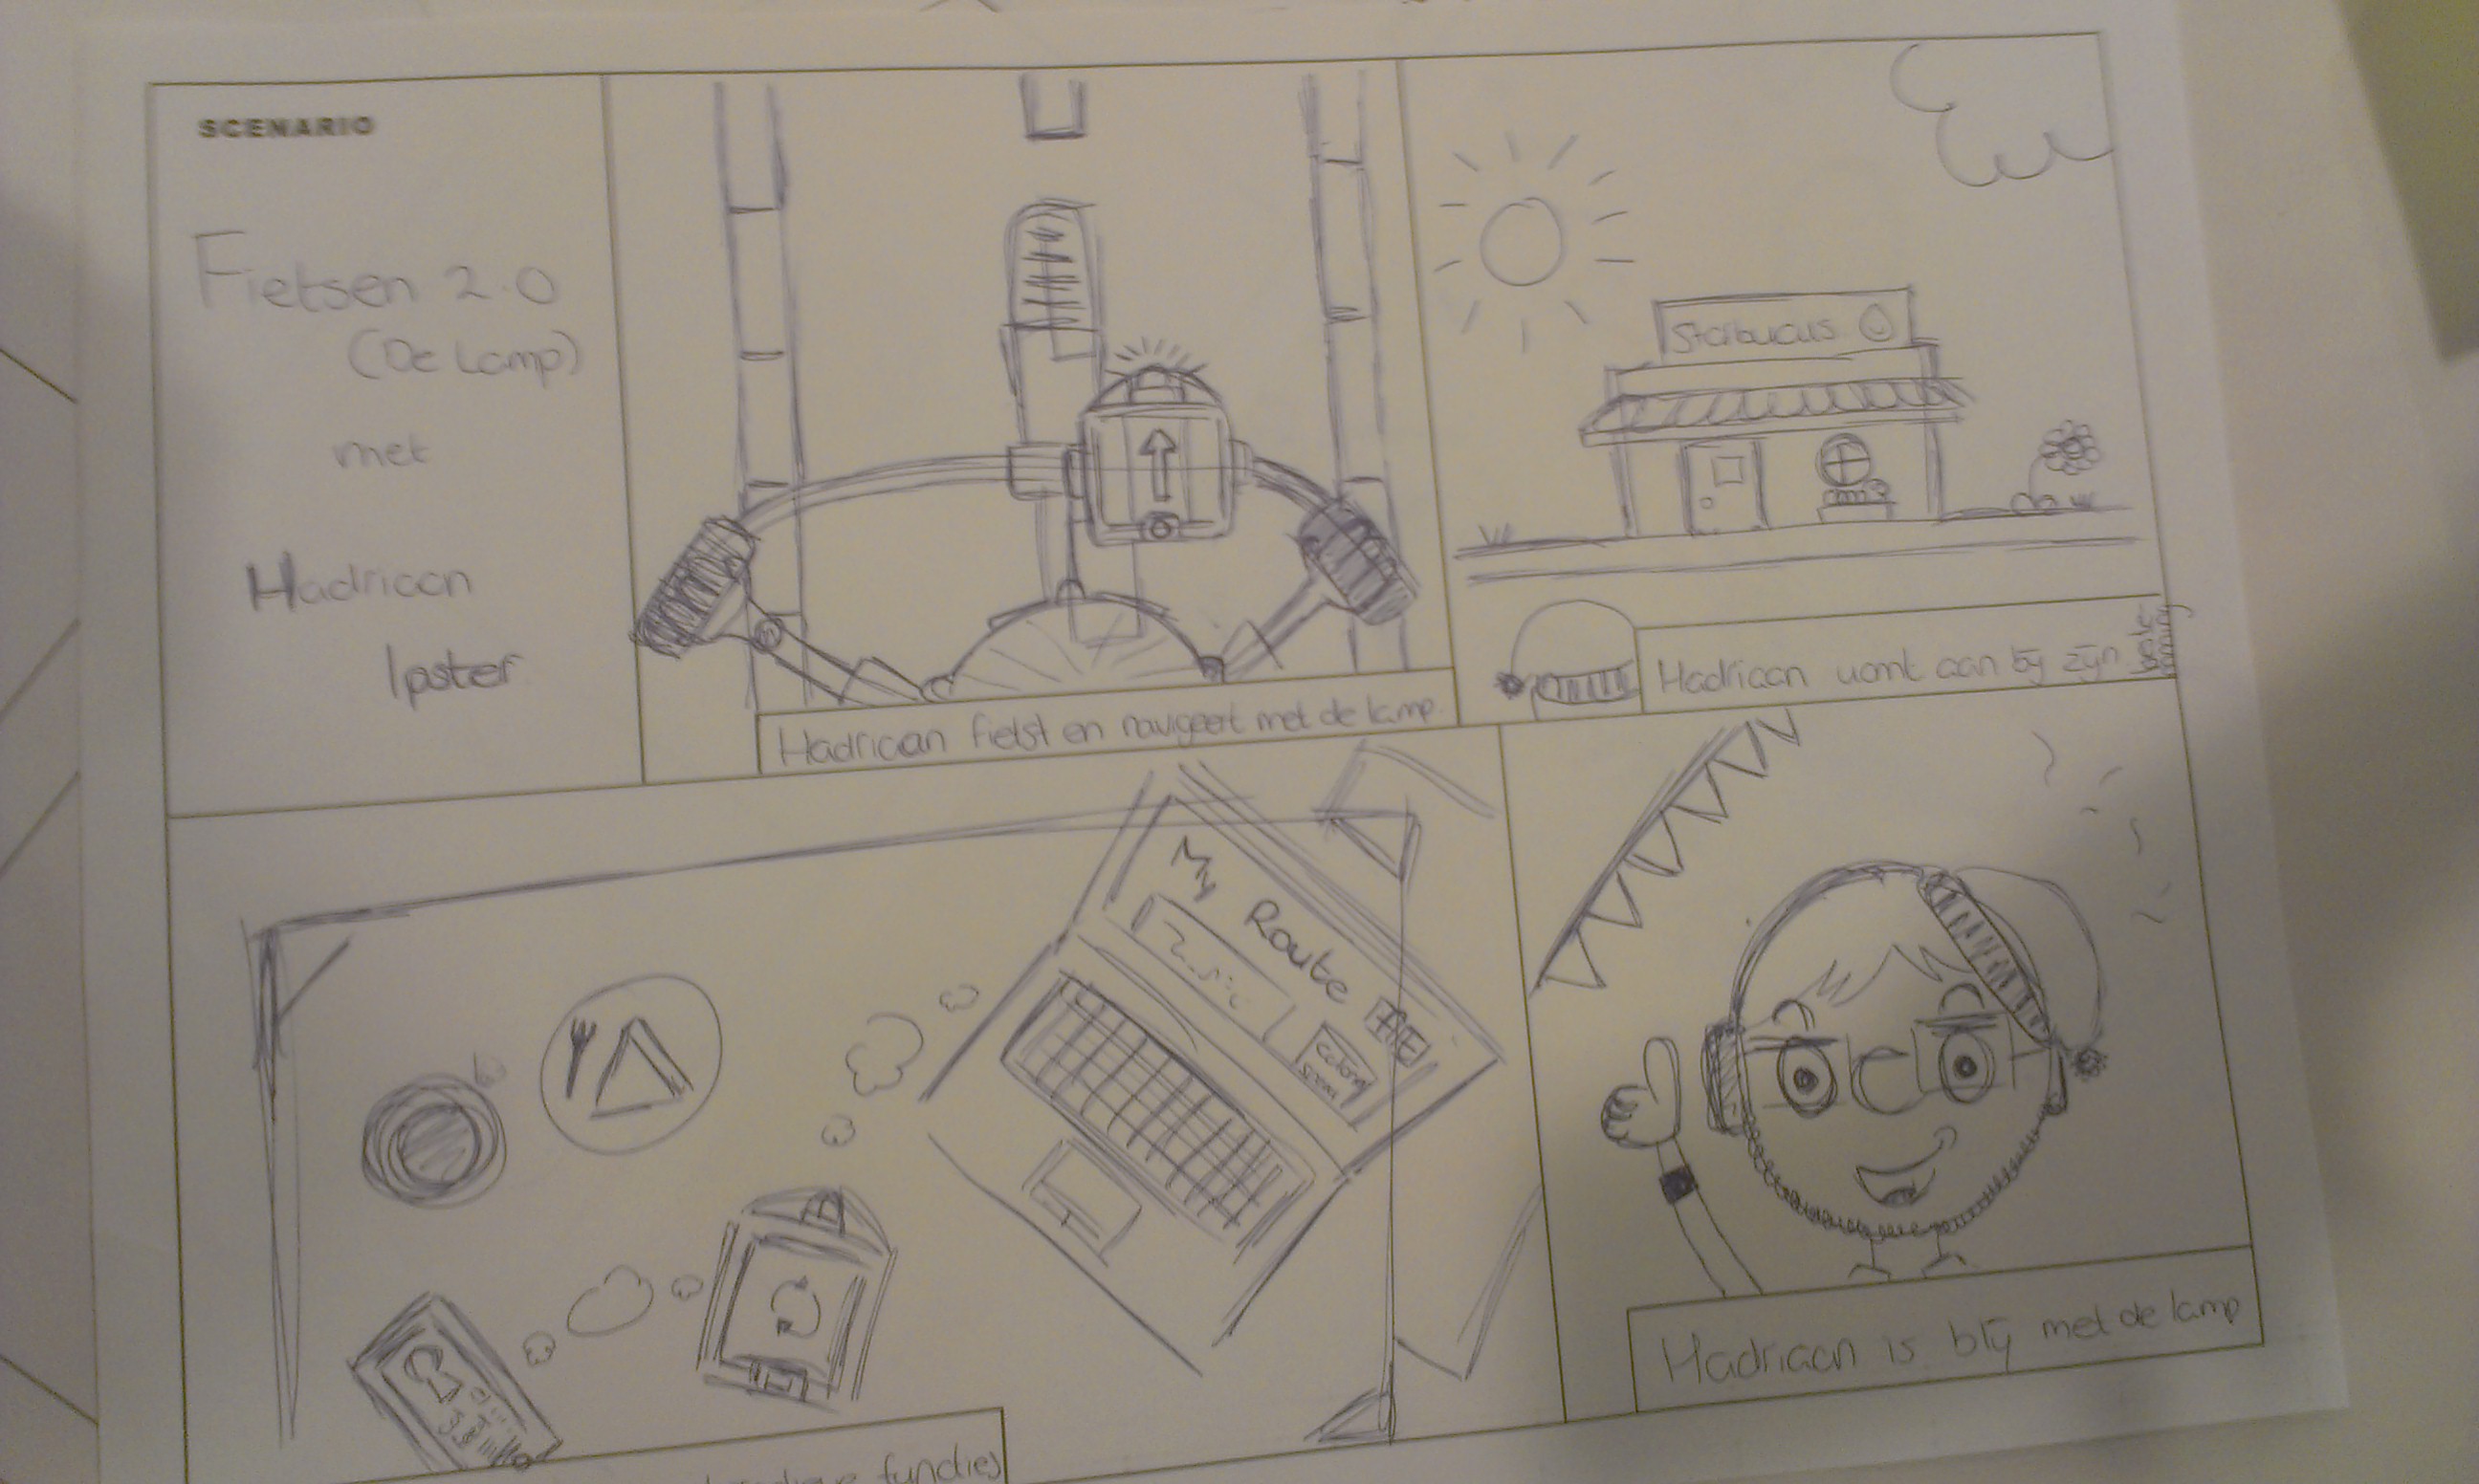 SCENARIO
Fietsen 2.0
(De Lamp)
met
Hadriaan
Ipster
Hadriaan fietst en navigeert met de lamp.
Starbucks
Hadriaan komt aan bij zijn
My Route
functies
Hadriaan is blij met de lamp